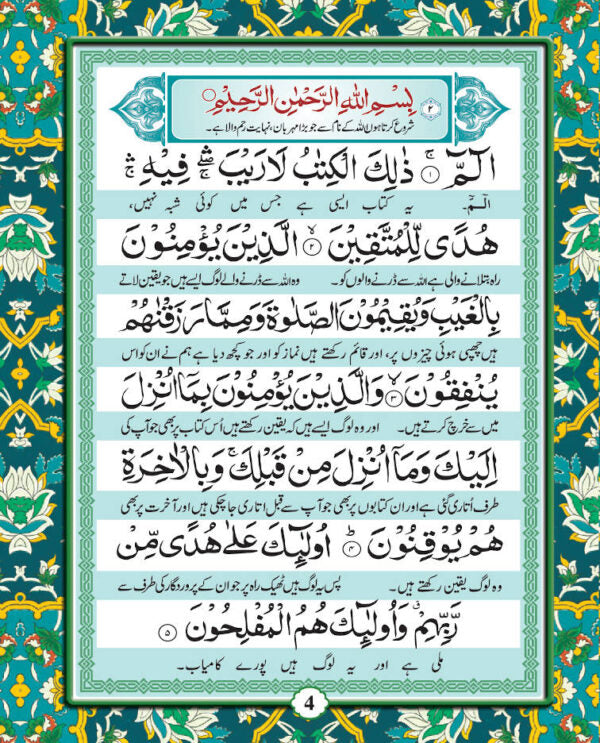 بِسْمِ اللّٰهِ الرَّحْمٰنِ الرَّحِيْمِ
۲
شروع کرتا ہوں اللہ کے نام سے جو بڑا مہربان، نہایت رحم والا ہے۔
الٓمّٓ ۚ ۱ ذٰلِكَ الْكِتٰبُ لَا رَيْبَ ۛۖ فِيْهِ ۛۚ
الٓمّٓ۔ یہ کتاب ایسی ہے جس میں کوئی شبہ نہیں،
هُدًى لِّلْمُتَّقِيْنَ ۙ ۲ الَّذِيْنَ يُؤْمِنُوْنَ
راہ بتلانے والی ہے اللہ سے ڈرنے والوں کو۔ وہ اللہ سے ڈرنے والے لوگ ایسے ہیں جو یقین لاتے
بِالْغَيْبِ وَيُقِيْمُوْنَ الصَّلٰوةَ وَمِمَّا رَزَقْنٰهُمْ
ہیں چھپی ہوئی چیزوں پر، اور قائم رکھتے ہیں نماز کو اور جو کچھ دیا ہے ہم نے ان کو اس
يُنْفِقُوْنَ ۙ ۳ وَالَّذِيْنَ يُؤْمِنُوْنَ بِمَآ اُنْزِلَ
میں سے خرچ کرتے ہیں۔ اور وہ لوگ ایسے ہیں کہ یقین رکھتے ہیں اُس کتاب پر بھی جو آپ کی
اِلَيْكَ وَمَآ اُنْزِلَ مِنْ قَبْلِكَ ۚ وَبِالْاٰخِرَةِ
طرف اُتاری گئی ہے اور ان کتابوں پر بھی جو آپ سے قبل اتاری جا چکی ہیں اور آخرت پر بھی
هُمْ يُوْقِنُوْنَ ؕ ۴ اُولٰٓئِكَ عَلٰى هُدًى مِّنْ
وہ لوگ یقین رکھتے ہیں۔ پس یہ لوگ ہیں ٹھیک راہ پر جو ان کے پروردگار کی طرف سے
رَّبِّهِمْ ۗ وَاُولٰٓئِكَ هُمُ الْمُفْلِحُوْنَ ۵
ملی ہے اور یہ لوگ ہیں پورے کامیاب۔
4